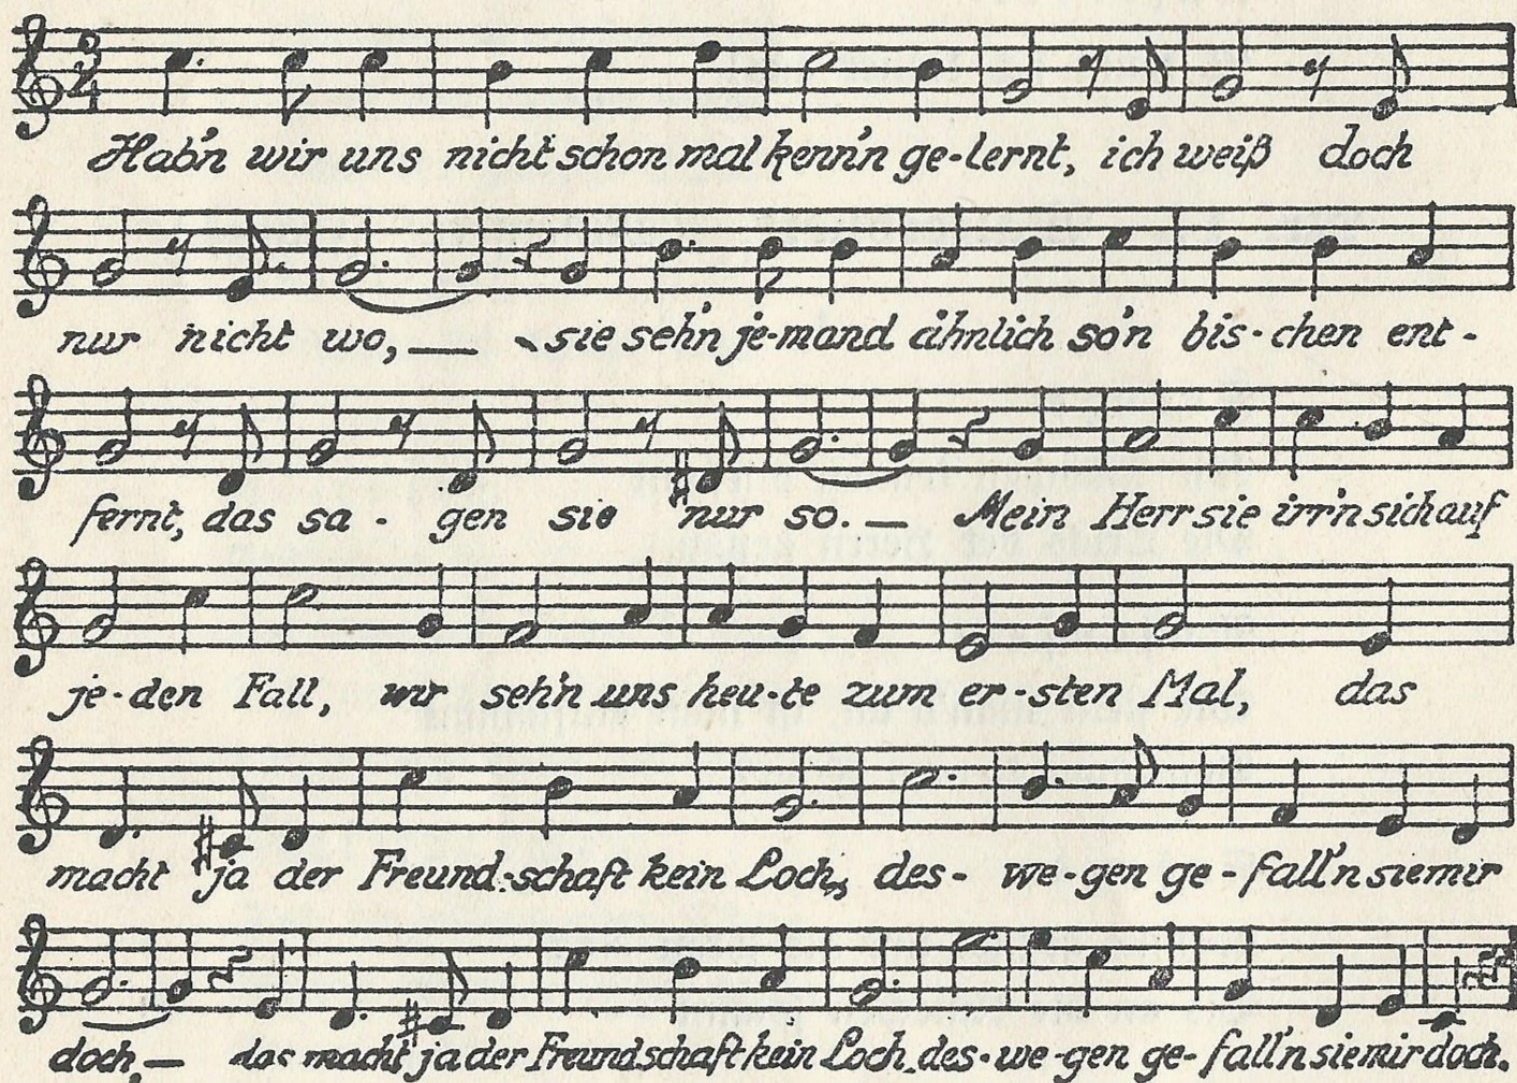 3
4
Hab'n wir uns nicht schon mal kenn'n ge-lernt, ich weiß doch
nur nicht wo, — sie seh'n je-mand ähnlich so'n bis-chen ent-
fernt, das sa - gen sie nur so. — Mein Herr sie irr'n sich auf
je-den Fall, wir seh'n uns heu-te zum er-sten Mal, das
macht ja der Freund-schaft kein Loch, des- we-gen ge-fall'n sie mir
doch, — das macht ja der Freundschaft kein Loch, des-we-gen ge-fall'n sie mir doch.